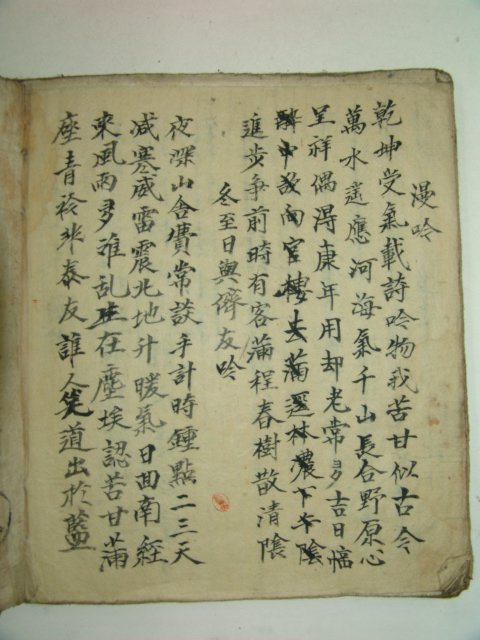 漫吟
乾坤受氣載詩吟物我苦甘似古今
萬水遙應河海氣千山長合野原心
呈祥偶得康年用却老常多吉日臨
醉中故向官樓去滿逕林濃下午陰
進步爭前時有客滿程春樹散清陰
冬至日與儕友吟
夜深山舍費常談手計時鍾點二三天
减寒威雷震北地升暖氣日回南經
來風雨多離乱生在塵埃認苦甘滿
座青衿非泰友誰人笑道出於藍